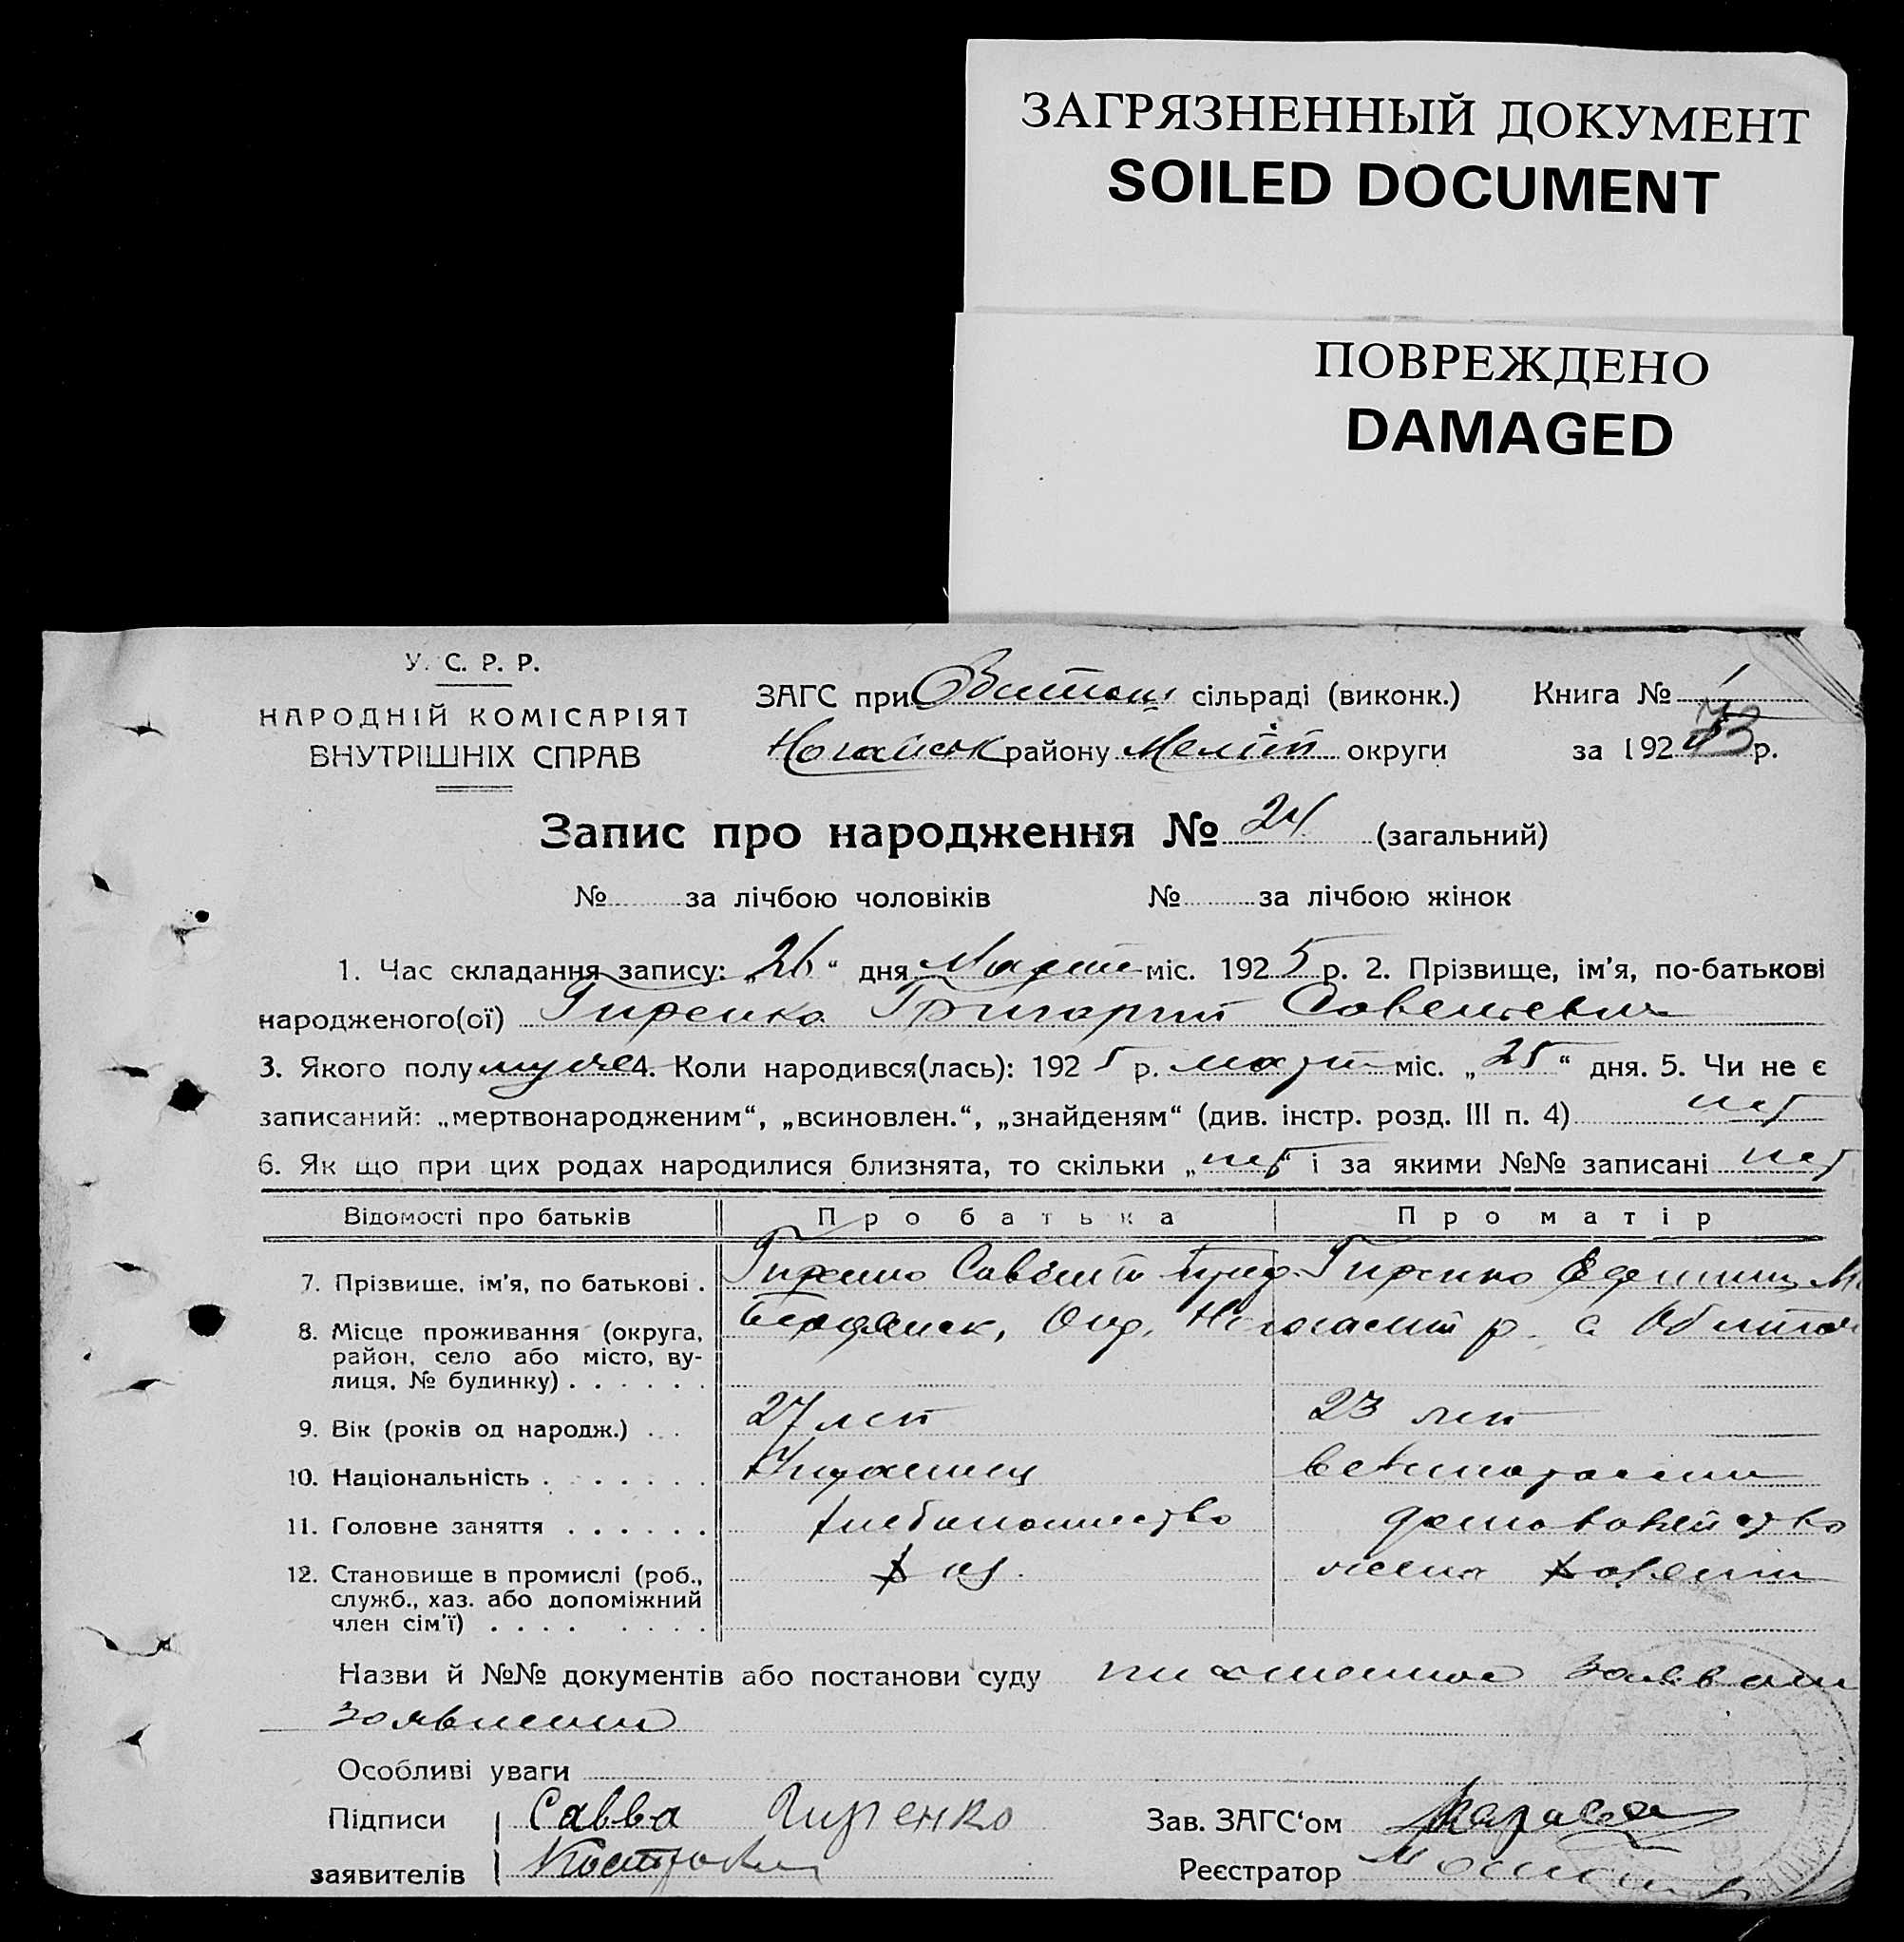 ЗАГРЯЗНЕННЫЙ ДОКУМЕНТ
SOILED DOCUMENT
ПОВРЕЖДЕНО
DAMAGED
У. С. Р. Р.
НАРОДНІЙ КОМІСАРІЯТ
ВНУТРІШНІХ СПРАВ
ЗАГС при сільраді (виконк.) Книга № 1
Ногайськ району Меліт округи за 192 р.
73
Запис про народження № 24 (загальний)
№ за лічбою чоловіків № за лічбою жінок
1. Час складання запису: „26“ дня Марта міс. 1925 р. 2. Прізвище, ім'я, по-батькові
народженого(ої) Гиренко Григорий Савельевич
3. Якого полу муж 4. Коли народився(лась): 1925 р. март міс. „25“ дня. 5. Чи не є
записаний: „мертвонародженим“, „всиновлен.“, „знайденям“ (див. інстр. розд. III п. 4) нет
6. Як що при цих родах народилися близнята, то скільки „нет“ і за якими №№ записані нет
Відомості про батьків Про батька Про матір
7. Прізвище, ім'я, по батькові . Гиренко Гиренко
8. Місце проживання (округа, район, село або місто, вулиця, № будинку) . . . . . . Окр. р. с
9. Вік (років од народж.) . . . 27 лет 23 лет
10. Національність . . . . . . . Украинец
11. Головне заняття . . . . . . хлебопашество домохозяйство
12. Становище в промислі (роб., хоз. член
служб., хаз. або допоміжний
член сім'ї) . . . . . . . .
Назви й №№ документів або постанови суду
заявление
Особливі уваги
Підписи Савва Гиренко Зав. ЗАГС'ом
заявителів Реєстратор